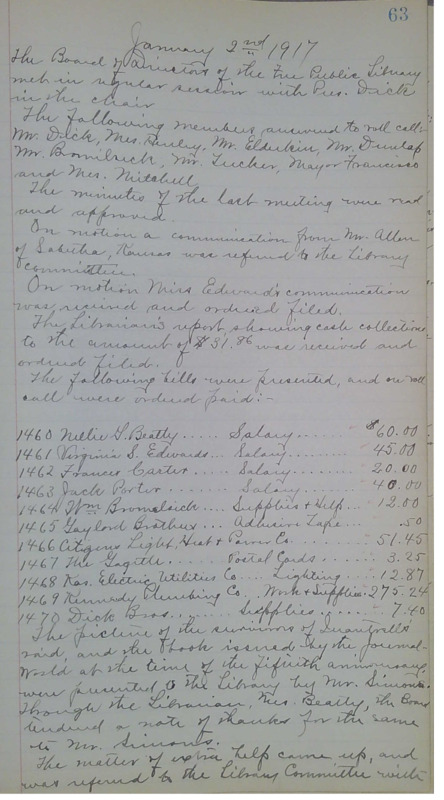 63
January 2nd 1917
The Board of Directors of the Free Public Library
met in regular session with Pres. Dick
in the chair
The following members answered to roll call:
Mr. Dick, Mrs. Mr. Elderkin, Mr. Dunlap
Mr. Bromelsick, Mr. Tucker, Mayor Francisco
and Mrs. Mitchell
The minutes of the last meeting were read
and approved.
On motion a communication from Mr. Allen
of Sabetha, Kansas was referred to the Library
committee.
On motion Miss Edward's communication
was received and ordered filed.
The Librarian's report showing cash collections
to the amount of $31.86 was received and
ordered filed.
The following bills were presented, and on roll
call were ordered paid:-
1460 Nellie G. Beatty ..... Salary ....... $60.00
1461 Virginia S. Edwards... Salary....... 45.00
1462 Frances Carter.... Salary....... 20.00
1463 Jack Porter ....... Salary...... 40.00
1464 Wm Bromelsick.... Supplies & Help... 12.00
1465 Gaylord Brothers.... Adhesive Tape... .50
1466 Citizens Light, Heat & Power Co. ...... 51.45
1467 The Gazette...... Postal Cards.... 3.25
1468 Kas. Electric Utilities Co.... Lighting.... 12.87
1469 Kennedy Plumbing Co.. Work & Supplies. 275.24
1470 Dick Bros...... Supplies....... 7.40
The picture of the survivors of Quantrell's
raid, and the book issued by the Journal-
World at the time of the fiftieth anniversary,
were presented to the Library by Mr. Simons.
Through the Librarian, Mrs. Beatty, the Board
tendered a note of thanks for the same
to Mr. Simons.
The matter of extra help came up, and
was referred to the Library Committee with